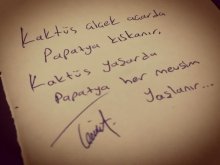 Kaktüs çiçek açarda
Papatya kıskanır,
Kaktüs yaşarda
Papatya her mevsim
yaşlanır...